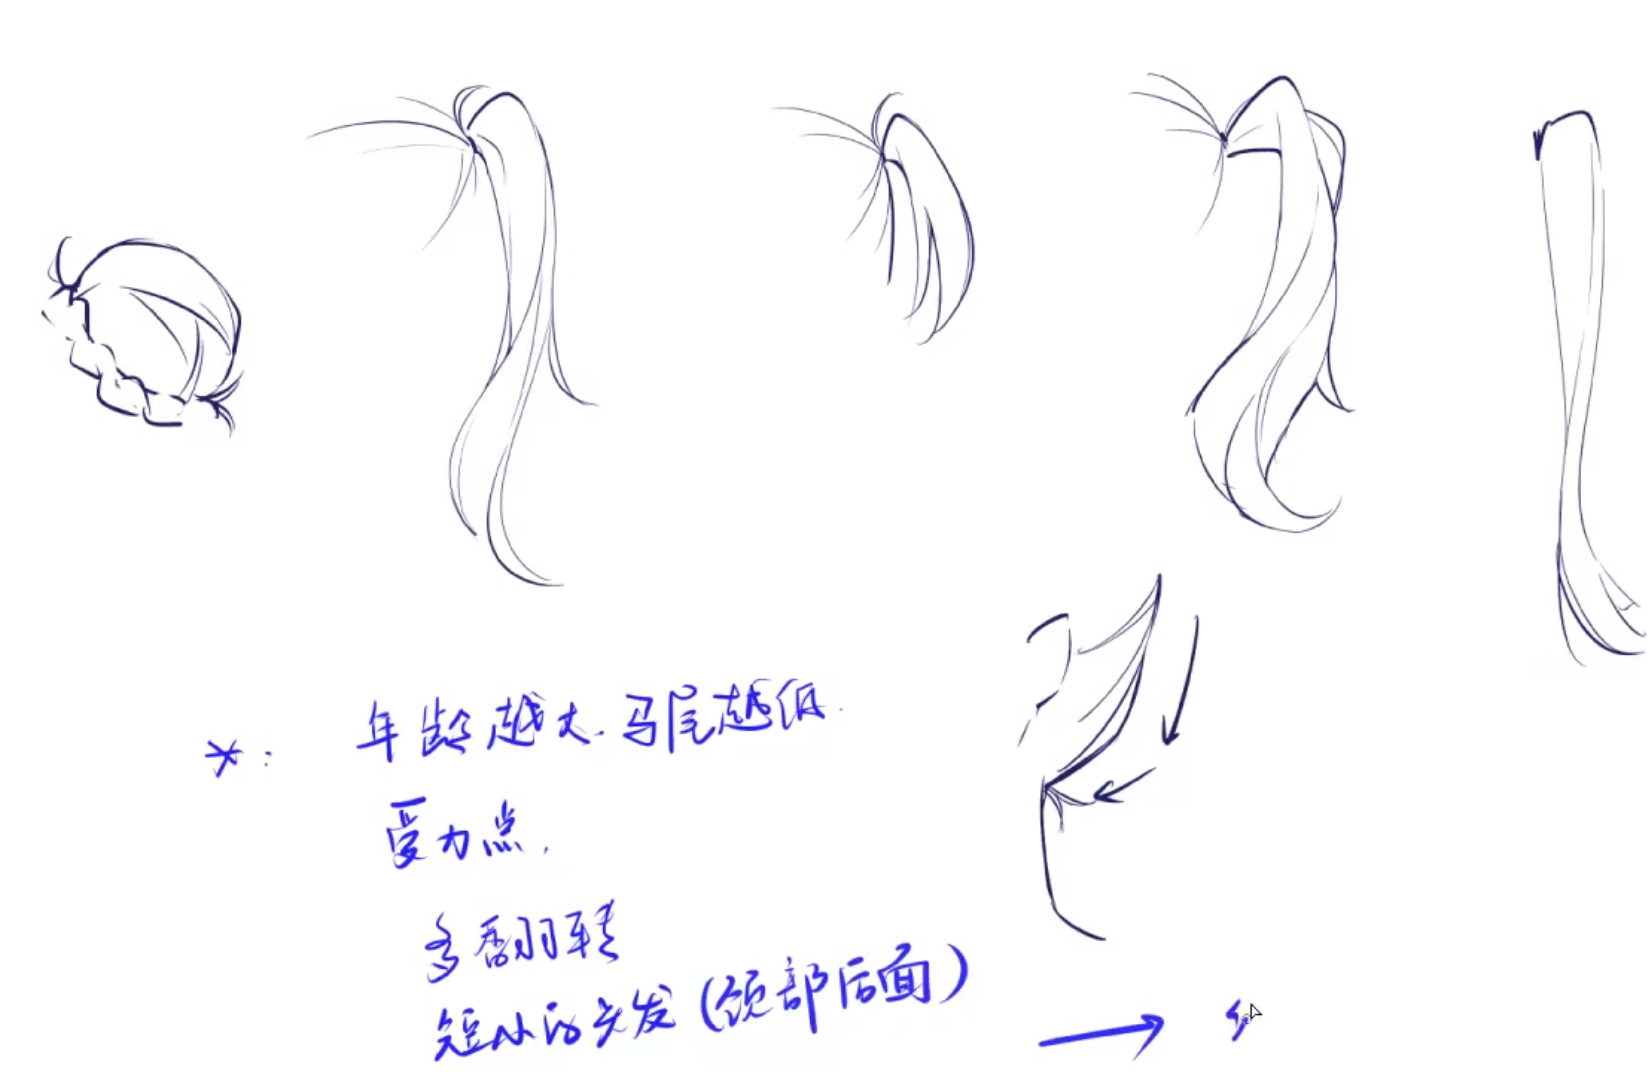 *: 年龄越大.马尾越低.
受力点,
多翻转
短小的头发(颈部后面)